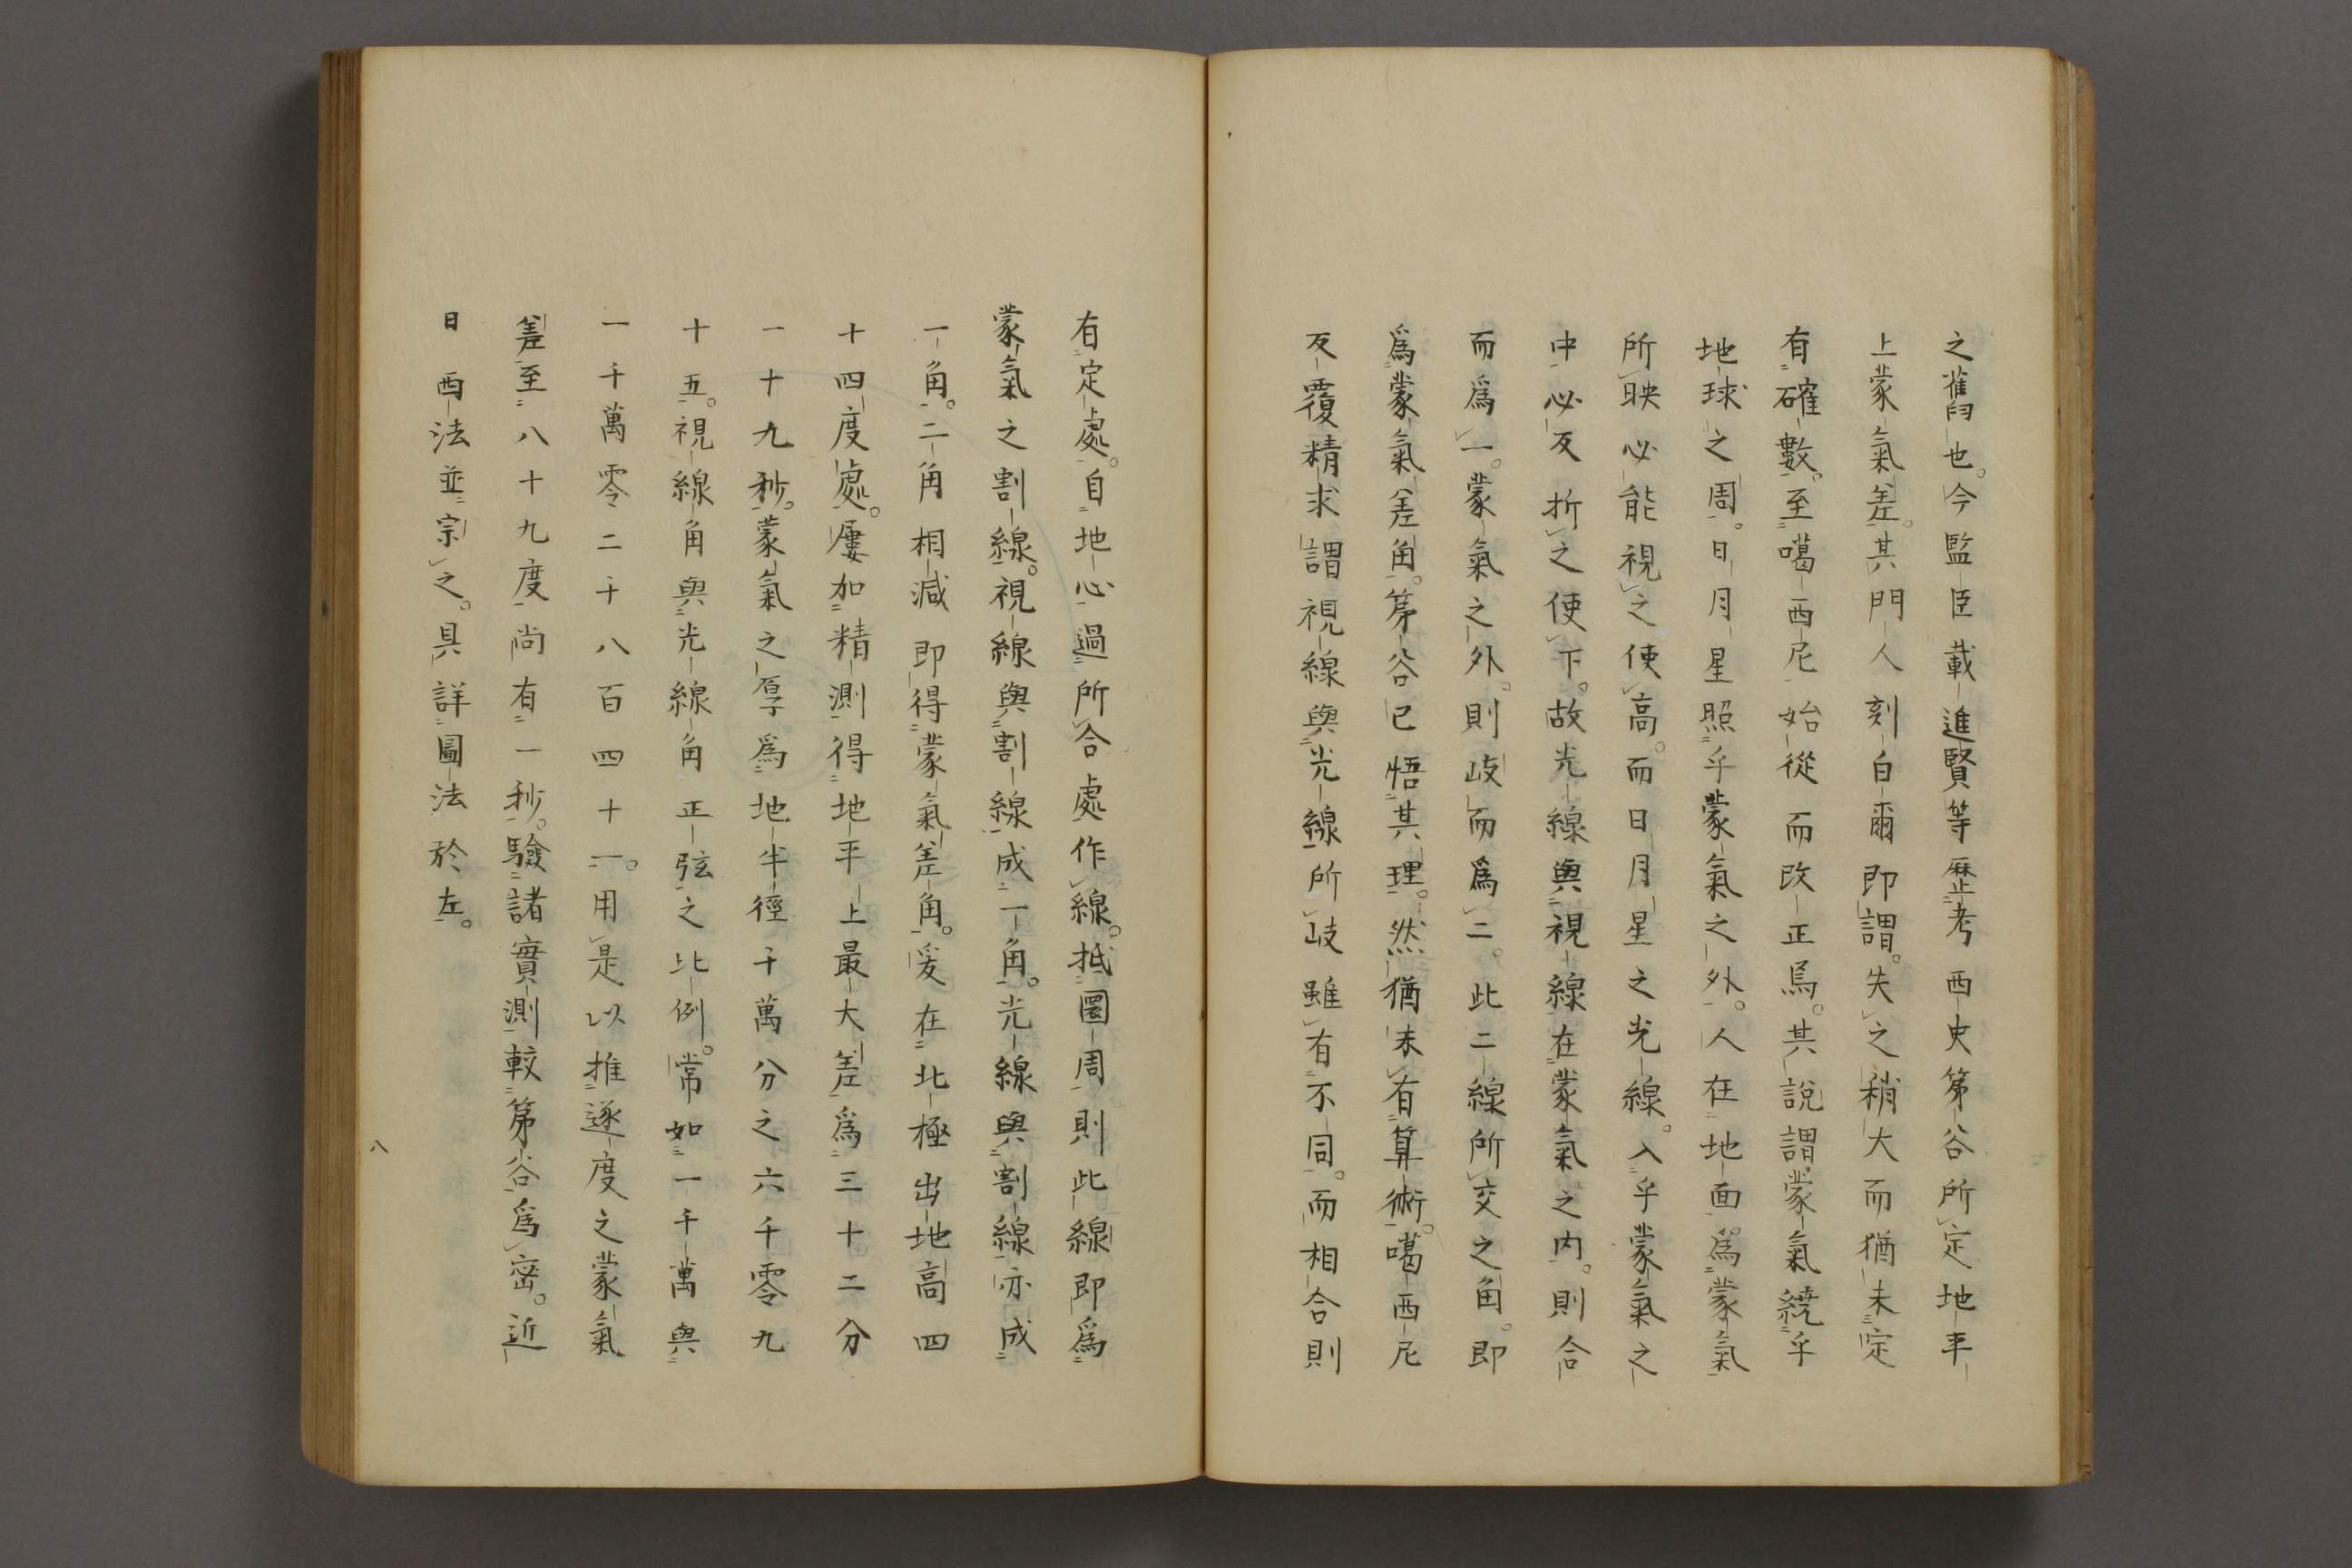 之舊也。今監臣載進賢等歷考西史第谷所定地平
上蒙氣差。其門人刻白爾即謂。失之稍大而猶未定
有確數。至噶西尼始從而改正焉。其說謂蒙氣繞乎
地球之周。日月星照乎蒙氣之外。人在地面。爲蒙氣
所映必能視之使高。而日月星之光線。入乎蒙氣之
中必反折之使下。故光線與視線在蒙氣之内。則合
而爲一。蒙氣之外。則歧而爲二。此二線所交之角。即
爲蒙氣差角。第谷已悟其理。然猶未有算術。噶西尼
反覆精求謂視線與光線所歧雖有不同。而相合則
有定處。自地心過所合處作線。抵圜周則此線即爲
蒙氣之割線。視線與割線成一角。光線與割線亦成
一角。二角相減即得蒙氣差角。爰在北極出地高四
十四度處。屢加精測得地平上最大差爲三十二分
一十九秒。蒙氣之厚爲地半徑千萬分之六千零九
十五。視線角與光線角正弦之比例。常如一千萬與
一千萬零二千八百四十一。用是以推逐度之蒙氣
差至八十九度尚有一秒。驗諸實測較第谷爲密。近
日西法並宗之。具詳圖法於左。
八